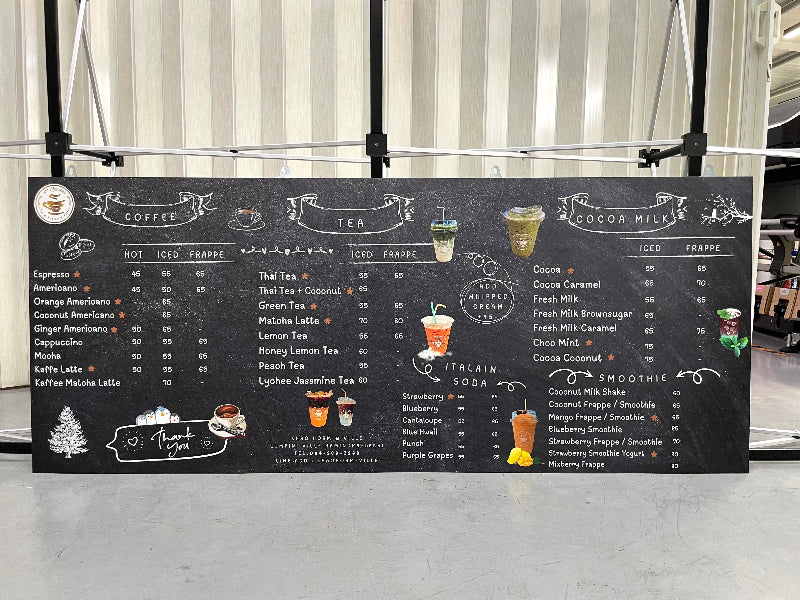 COFFEE
HOT ICED FRAPPE
Espresso 45 55 65
Americano 45 50 65
Orange Americano 65
Coconut Americano 65
Ginger Americano 50 65
Cappuccino 50 55 65
Mocha 50 55 65
Kaffe Latte 50 55 65
Kaffee Matcha Latte 70
Thank
you
TEA
ICED FRAPPE
Thai Tea 55 65
Thai Tea + Coconut 65
Green Tea 55 65
Matcha Latte 70 80
Lemon Tea
Honey Lemon Tea 60
Peach Tea
Lychee Jassmine Tea 60
ADD
WHIPPED
CREAM
+15
ITALAIN
SODA
Strawberry
Blueberry
Cantaloupe
Blue Hwaii
Punch
Purple Grapes
COCOA MILK
ICED FRAPPE
Cocoa 55 65
Cocoa Caramel 65 70
Fresh Milk 55 65
Fresh Milk Brownsugar 65
Fresh Milk Caramel 65 75
Choc Mint
Cocoa Coconut
SMOOTHIE
Coconut Milk Shake
Coconut Frappe / Smoothie
Mango Frappe / Smoothie
Blueberry Smoothie
Strawberry Frappe / Smoothie
Strawberry Smoothie Yogurt
Mixberry Frappe